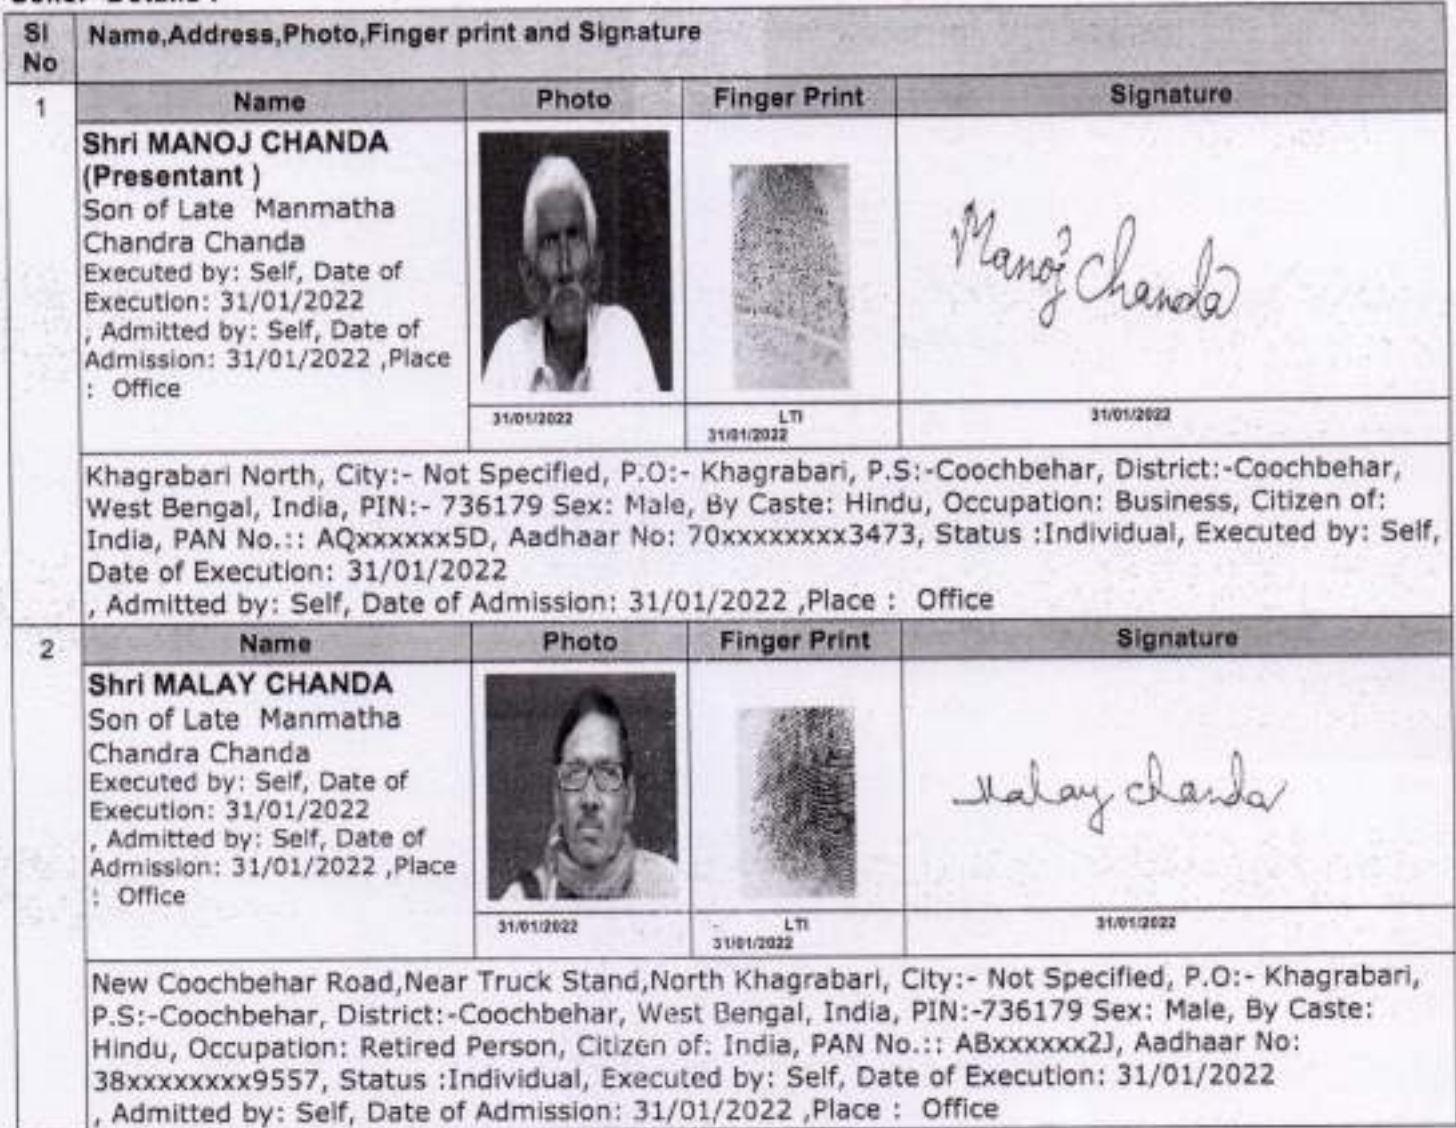 Sl No
Name,Address,Photo,Finger print and Signature
1
Name
Photo
Finger Print
Signature
Shri MANOJ CHANDA
(Presentant )
Son of Late Manmatha
Chandra Chanda
Executed by: Self, Date of
Execution: 31/01/2022
, Admitted by: Self, Date of
Admission: 31/01/2022 ,Place
: Office
Manoj Chanda
31/01/2022
LTI
31/01/2022
31/01/2022
Khagrabari North, City:- Not Specified, P.O:- Khagrabari, P.S:-Coochbehar, District:-Coochbehar,
West Bengal, India, PIN:- 736179 Sex: Male, By Caste: Hindu, Occupation: Business, Citizen of:
India, PAN No.:: AQxxxxxx5D, Aadhaar No: 70xxxxxxxx3473, Status :Individual, Executed by: Self,
Date of Execution: 31/01/2022
, Admitted by: Self, Date of Admission: 31/01/2022 ,Place : Office
2
Name
Photo
Finger Print
Signature
Shri MALAY CHANDA
Son of Late Manmatha
Chandra Chanda
Executed by: Self, Date of
Execution: 31/01/2022
, Admitted by: Self, Date of
Admission: 31/01/2022 ,Place
: Office
Malay Chanda
31/01/2022
LTI
31/01/2022
31/01/2022
New Coochbehar Road,Near Truck Stand,North Khagrabari, City:- Not Specified, P.O:- Khagrabari,
P.S:-Coochbehar, District:-Coochbehar, West Bengal, India, PIN:-736179 Sex: Male, By Caste:
Hindu, Occupation: Retired Person, Citizen of: India, PAN No.:: ABxxxxxx2J, Aadhaar No:
38xxxxxxxx9557, Status :Individual, Executed by: Self, Date of Execution: 31/01/2022
, Admitted by: Self, Date of Admission: 31/01/2022 ,Place : Office